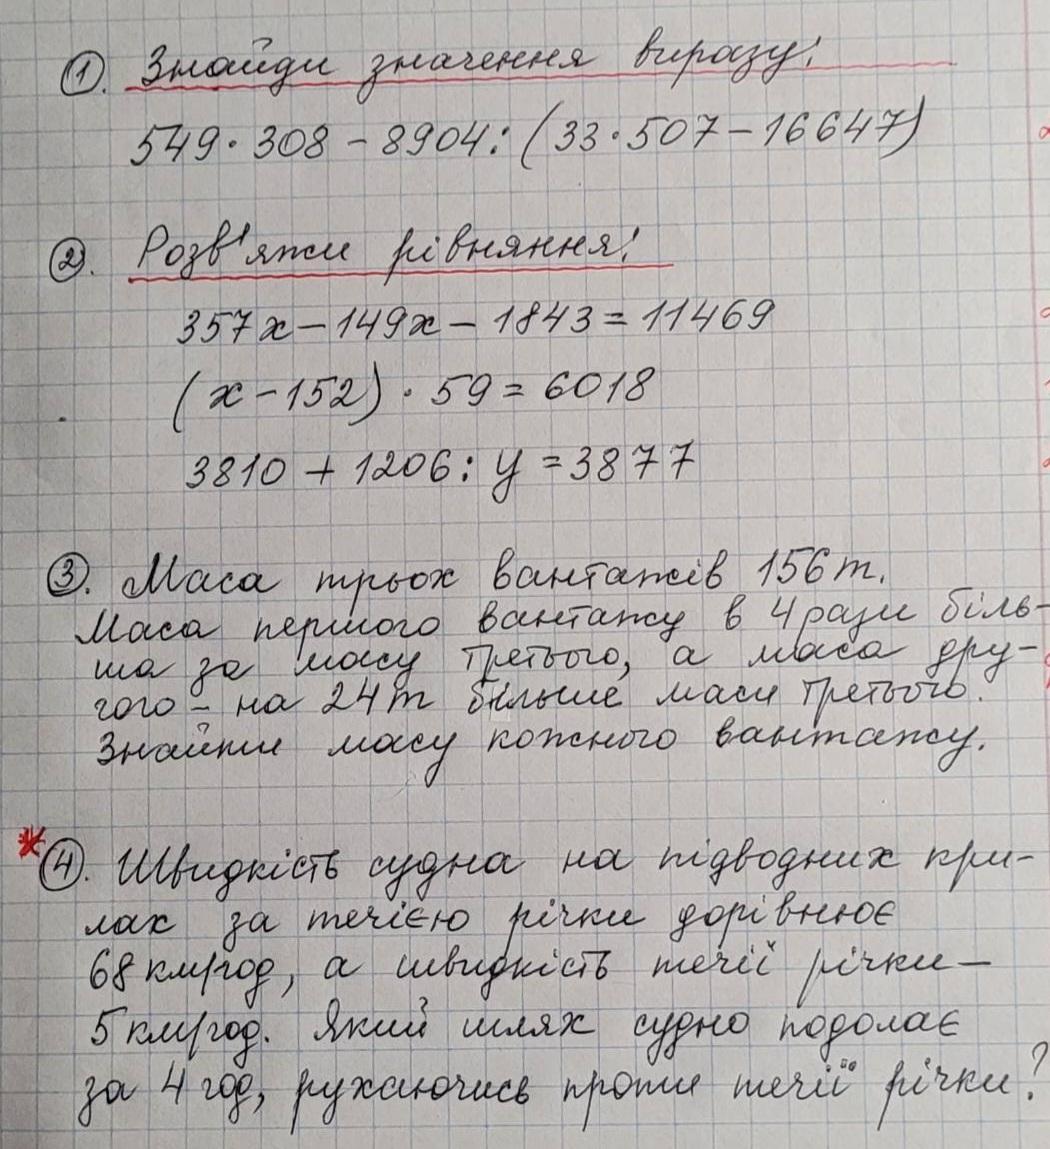 1. Знайди значення виразу:
549·308-8904:(33·507-16647)
2. Розв'яжи рівняння:
357x-149x-1843=11469
(x-152)·59=6018
3810+1206:y=3877
3. Маса трьох вантажів 156т.
Маса першого вантажу в 4 рази біль-
ша за масу третього, а маса дру-
гого - на 24т більше маси третього.
Знайти масу кожного вантажу.
*4. Швидкість судна на підводних кри-
лах за течією річки дорівнює
68км/год, а швидкість течії річки-
5км/год. Який шлях судно подолає
за 4 год, рухаючись проти течії річки?